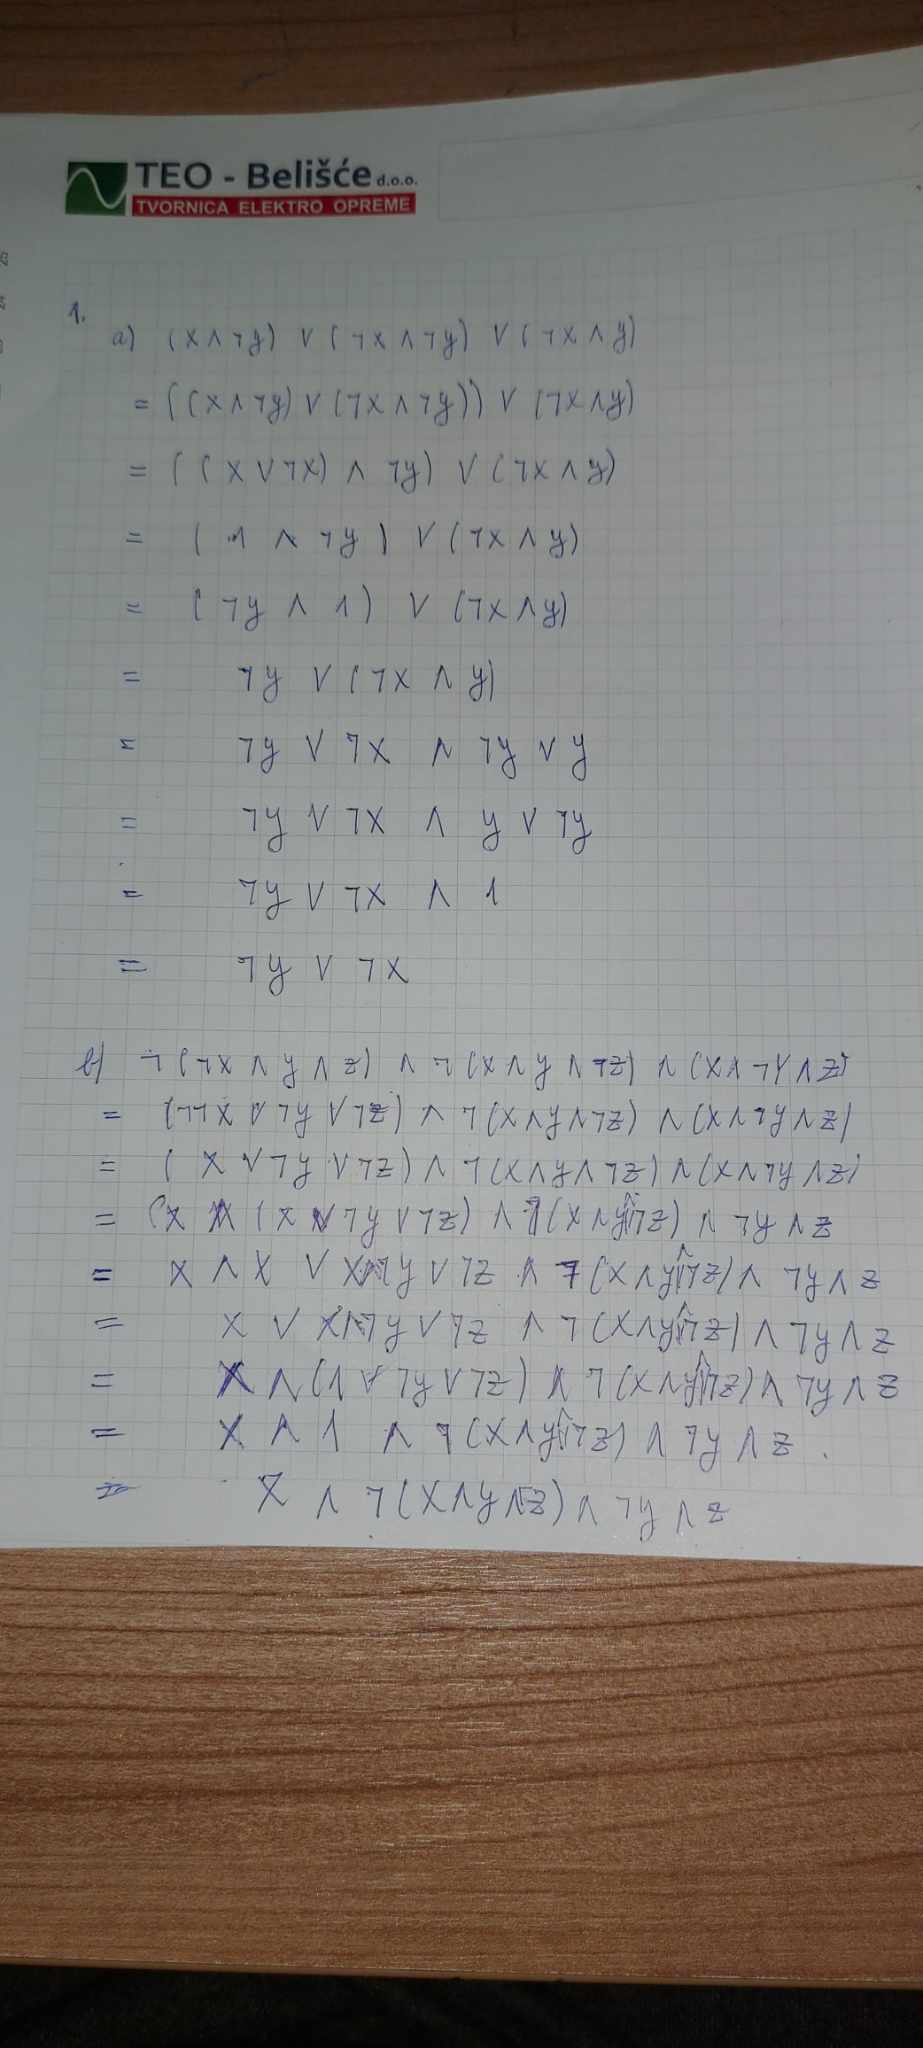 TEO - Belišće d.o.o.
TVORNICA ELEKTRO OPREME
1.
a) (x ∧ ¬y) ∨ (¬x ∧ ¬y) ∨ (¬x ∧ y)
= ((x ∧ ¬y) ∨ (¬x ∧ ¬y)) ∨ (¬x ∧ y)
= ((x ∨ ¬x) ∧ ¬y) ∨ (¬x ∧ y)
= (1 ∧ ¬y) ∨ (¬x ∧ y)
= (¬y ∧ 1) ∨ (¬x ∧ y)
= ¬y ∨ (¬x ∧ y)
= ¬y ∨ ¬x ∧ ¬y ∨ y
= ¬y ∨ ¬x ∧ y ∨ ¬y
= ¬y ∨ ¬x ∧ 1
= ¬y ∨ ¬x
b) ¬(¬x ∧ y ∧ z) ∧ ¬(x ∧ y ∧ ¬z) ∧ (x ∧ ¬y ∧ z)
= (¬¬x ∨ ¬y ∨ ¬z) ∧ ¬(x ∧ y ∧ ¬z) ∧ (x ∧ ¬y ∧ z)
= (x ∨ ¬y ∨ ¬z) ∧ ¬(x ∧ y ∧ ¬z) ∧ (x ∧ ¬y ∧ z)
= (x ∧ (x ∨ ¬y ∨ ¬z) ∧ ¬(x ∧ y ∧ ¬z) ∧ ¬y ∧ z
= x ∧ x ∨ x ∧ ¬y ∨ ¬z ∧ ¬(x ∧ y ∧ ¬z) ∧ ¬y ∧ z
= x ∨ x ∧ ¬y ∨ ¬z ∧ ¬(x ∧ y ∧ ¬z) ∧ ¬y ∧ z
= x ∧ (1 ∨ ¬y ∨ ¬z) ∧ ¬(x ∧ y ∧ ¬z) ∧ ¬y ∧ z
= x ∧ 1 ∧ ¬(x ∧ y ∧ ¬z) ∧ ¬y ∧ z
= x ∧ ¬(x ∧ y ∧ ¬z) ∧ ¬y ∧ z